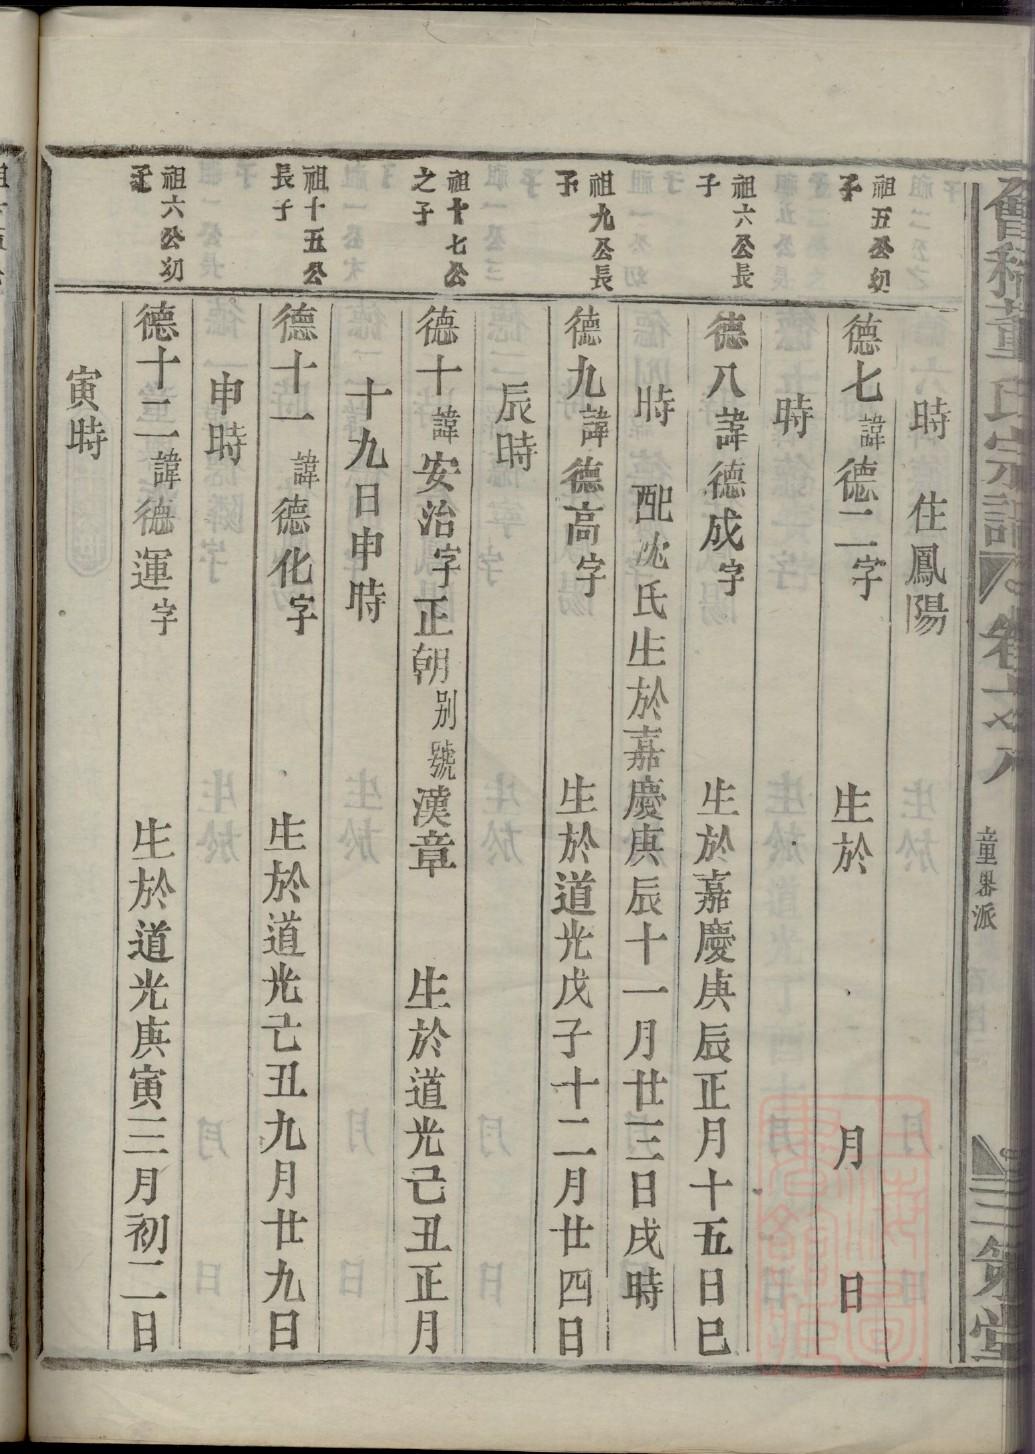 會稽董氏宗譜
童畧派
三策堂
時 住鳳陽
祖五公幼子
德七諱德二字 生於 月 日
時
祖六公長子
德八諱德成字 生於嘉慶庚辰正月十五日巳
時 配沈氏生於嘉慶庚辰十一月廿三日戌時
祖九公長子
德九諱德高字 生於道光戊子十二月廿四日
辰時
祖十七公之子
德十諱安治字正朝別號漢章 生於道光己丑正月
十九日申時
祖十五公長子
德十一諱德化字 生於道光己丑九月廿九日
申時
祖六公幼子
德十二諱德運字 生於道光庚寅三月初二日
寅時